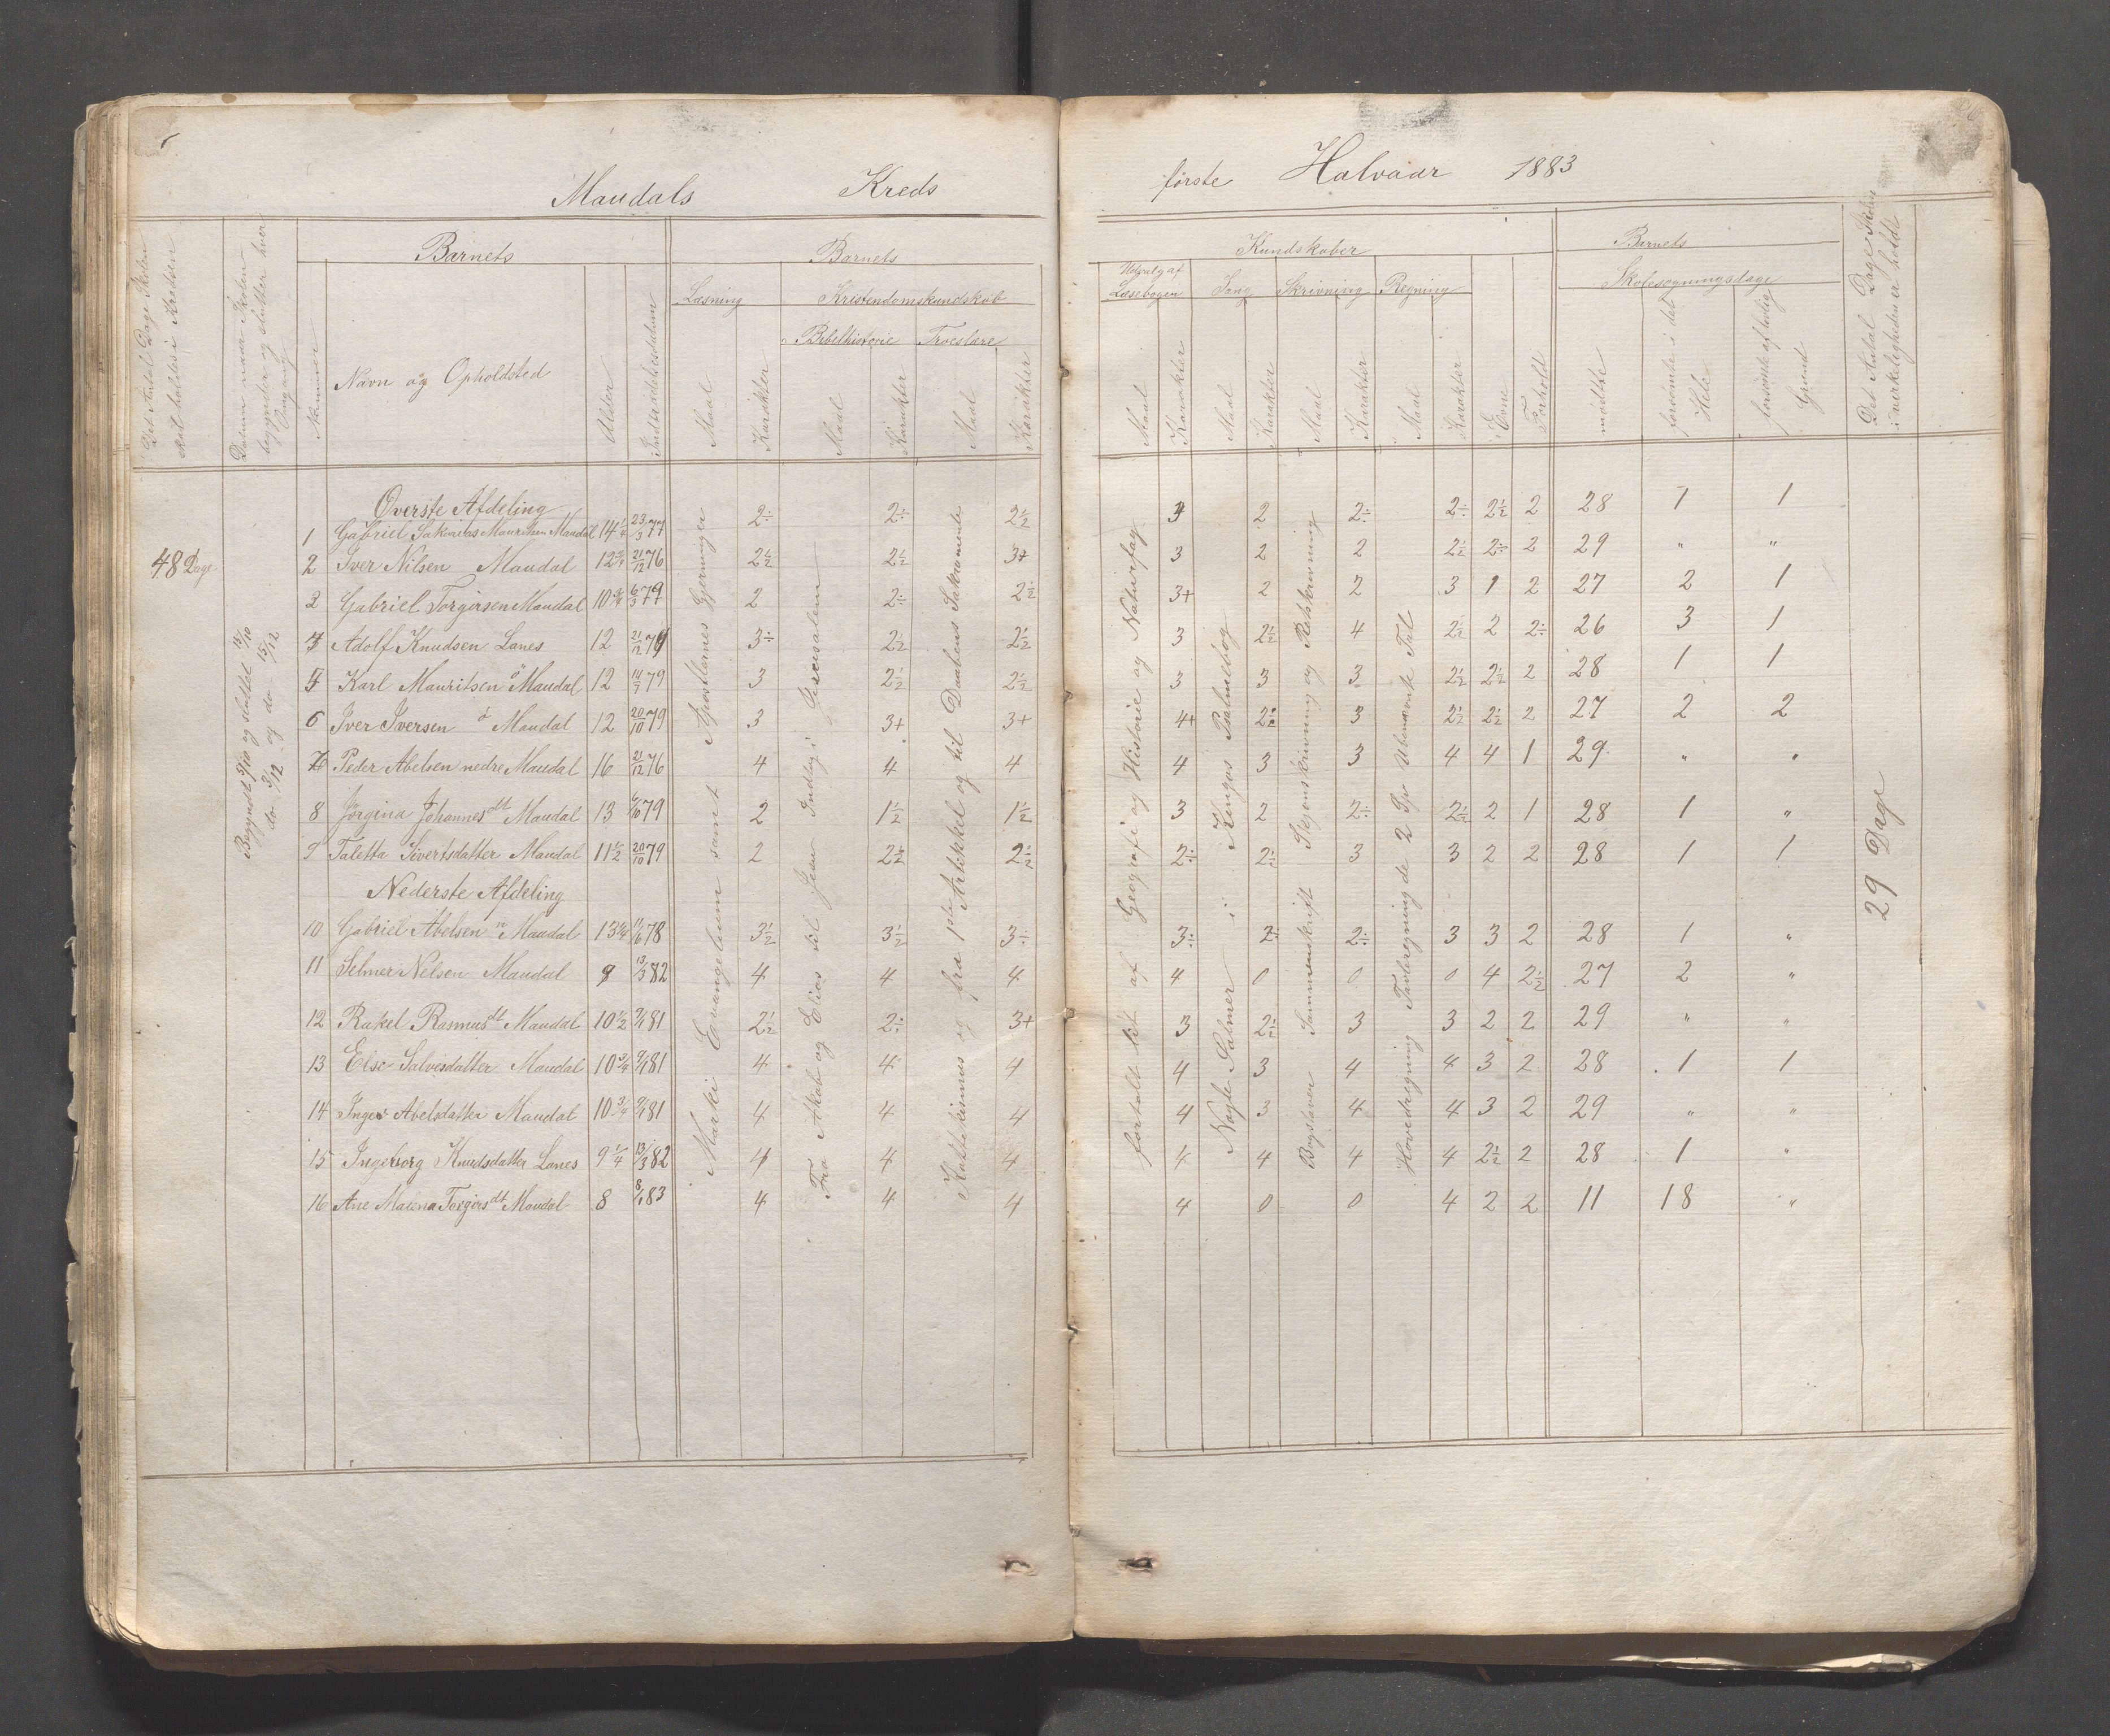 Maudals Kreds
første Halvaar 1883
Det Antal Dage Skolen skal holdes i Kredsen
Datum naar Skolen begynder og slutter hver Gang
Barnets
Barnets
Kundskaber
Barnets
Nummer
Navn og Opholdsted
Alder
Indtrædelsesdatum
Læsning
Kristendomskundskab
Bibelhistorie
Troeslære
Maal
Karakter
Maal
Karakter
Maal
Karakter
Udvalg af Læsebogen
Sang
Skrivning
Regning
Maal
Karakter
Maal
Karakter
Maal
Karakter
Maal
Karakter
Evne
Forhold
Skolesøgningsdage
mødte
forsømte i det Hele
forsømte af lovlig Grund
Det Antal Dage Skolen i virkeligheden er holdt
48 Dage
Begyndt 5/10 og sluttet 15/10
do 3/12 og do 15/12
Øverste Afdeling
1 Gabriel Sakarias Mauritsen Maudal 14 1/4 23/3 77 2÷ 2÷ 2½ 3 2 2÷ 2÷ 2½ 2 28 1 1
2 Iver Nilsen Maudal 12 3/4 21/12 76 2½ 2½ 3+ 3 2 2 2½ 2÷ 2 29 " "
3 Gabriel Torgirsen Maudal 10 3/4 6/3 79 2 2÷ 2½ 3+ 2 2 3 1 2 27 2 1
4 Adolf Knudsen Lanes 12 21/12 79 3÷ 2½ 2½ 3 2½ 4 2½ 2 2÷ 26 3 1
5 Karl Mauritsen ø Maudal 12 14/7 79 3 2½ 2½ 3 3 3 2½ 2½ 2 28 1 1
6 Iver Iversen ø Maudal 12 20/10 79 3 3+ 3+ 4+ 2÷ 3 2½ 2½ 2 27 2 2
7 Peder Abelsen nedre Maudal 16 21/12 76 4 4 4 4 3 3 4 4 1 29 " "
8 Jørgina Johannesdt Maudal 13 6/10 79 2 1½ 1½ 3 2 2÷ 2½ 2 1 28 1 "
9 Taletta Sivertsdatter Maudal 11½ 20/10 79 2 2½ 2½ 2÷ 2½ 3 3 2 2 28 1 1
Nederste Afdeling
10 Gabriel Abelsen n Maudal 13 3/4 11/6 78 3½ 3½ 3÷ 3÷ 2÷ 2÷ 3 3 2 28 1 "
11 Selmer Nilsen Maudal 9 13/3 82 4 4 4 4 0 0 0 4 2½ 27 2 "
12 Rakel Rasmusdt Maudal 10½ 9/1 81 2½ 2÷ 3+ 3 2½ 3 3 2 2 29 " "
13 Else Salvesdatter Maudal 10 3/4 9/1 81 4 4 4 4 3 4 4 3 2 28 1 1
14 Inger Abelsdatter Maudal 10 3/4 9/1 81 4 4 4 4 3 4 4 3 2 29 " "
15 Ingeborg Knudsdatter Lanes 9 1/4 13/3 82 4 4 4 4 4 4 4 2½ 2 28 1 "
16 Ane Malena Torgirsdt Maudal 8 8/1 83 4 4 4 4 0 0 4 2 2 11 18 "
Marki Evangelium samt Apostlernes Gjerninger
Fra Akab og Elias til Jesu Indtog i Jerusalem
Katekismus og fra 1ste Artikkel og til Daabens Sakramente
fortalt lidt af Geografi og Historie og Naturfag
Nogle Salmer i Kingos Psalmebog
Bogstaver Sammenskrift Skjønskrivning og Retskrivning
Hovedregning Tavleregning de 2 Sp Ubenævnte Tal
29 Dage